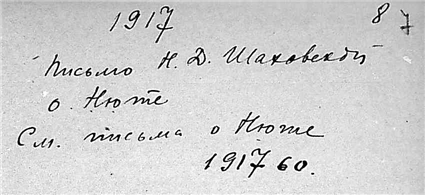 1917 8 7
Письмо Н. Д. Шаховской
о Нюте
См. письма о Нюте
1917 60.